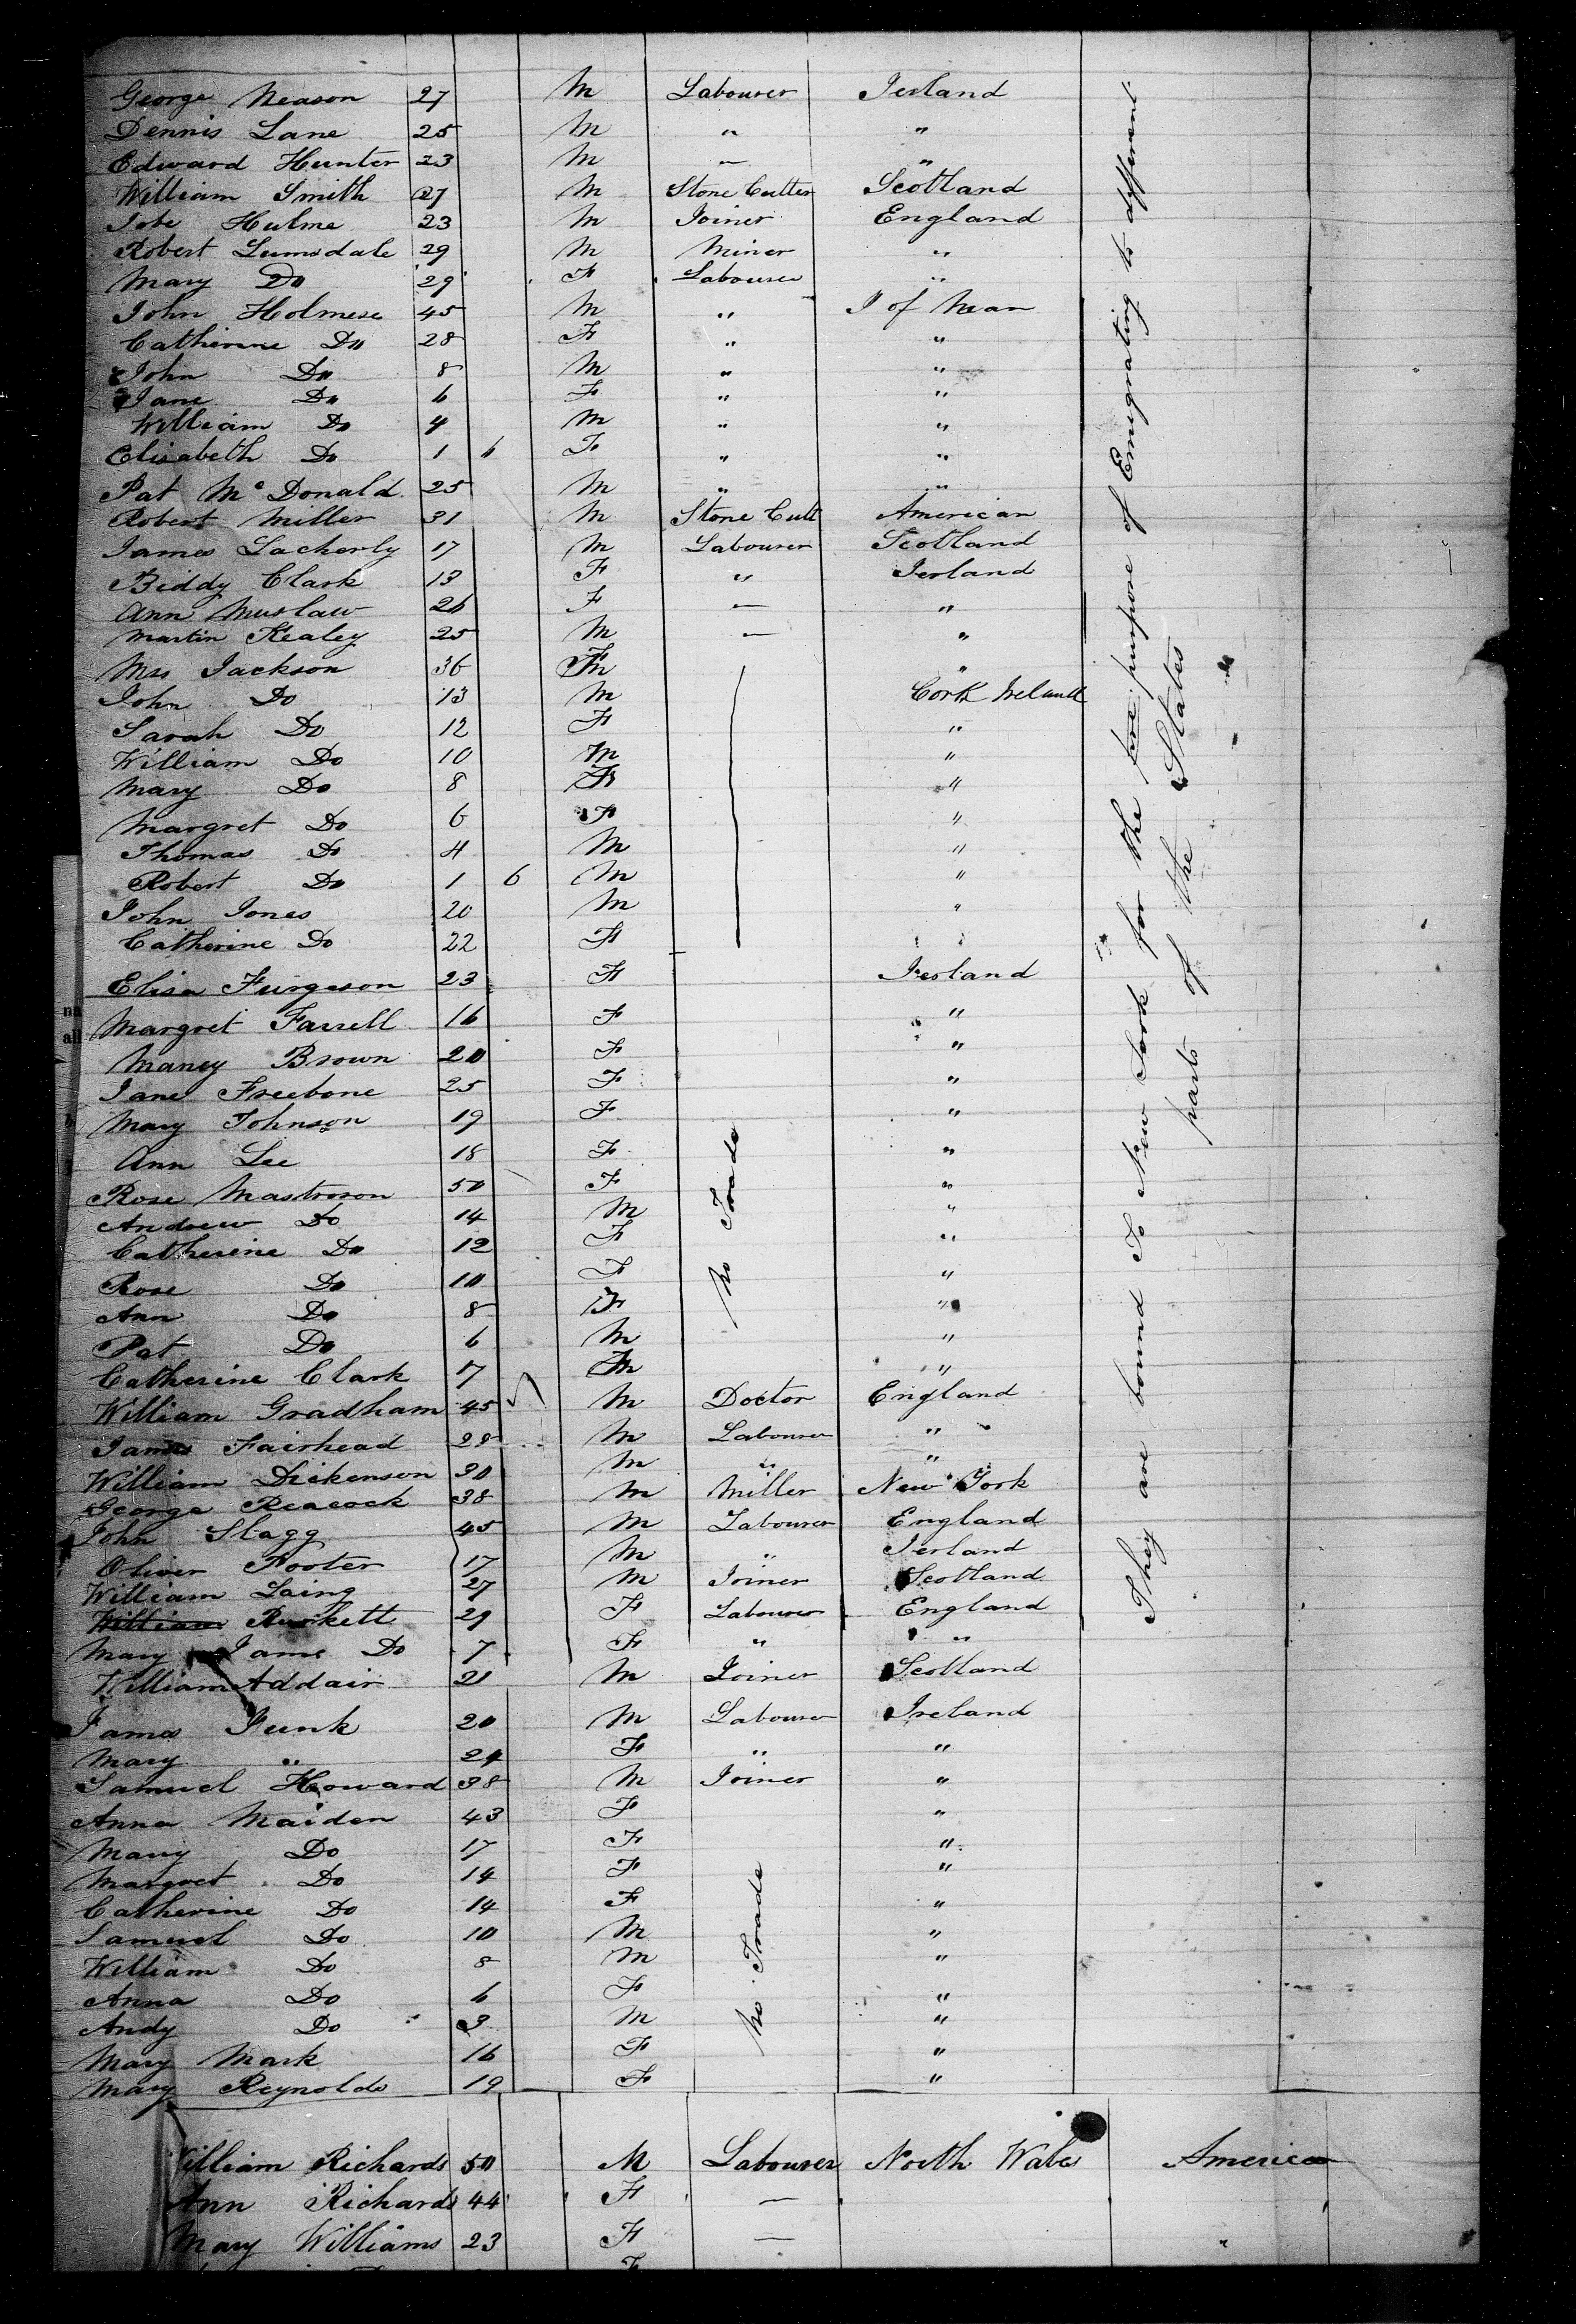 George Neason 27 M Labourer Ierland
Dennis Lane 25 M " "
Edward Hunter 23 M — "
William Smith 27 M Stone Cutter Scotland
Jobe Hulme 23 M Joiner England
Robert Lumsdale 29 M Miner "
Mary Do 29 F Labourer "
John Holmese 45 M " I of Man
Catherine Do 28 F " "
John Do 8 M " "
Jane Do 6 F " "
William Do 4 M " "
Elisabeth Do 1 6 F " "
Pat Mc Donald 25 M " "
Robert Miller 31 M Stone Cutt American
James Lacherly 17 M Labourer Scotland
Biddy Clark 13 F " Ierland
Ann Muslaw 26 F — "
Martin Kealey 25 M — "
Mrs Jackson 36 F "
John Do 13 M Cork Ireland
Sarah Do 12 F "
William Do 10 M "
Mary Do 8 F "
Margret Do 6 F "
Thomas Do 4 M "
Robert Do 1 6 M "
John Jones 20 M "
Catherine Do 22 F "
Elisa Furgeson 23 F Ierland
Margret Farrell 16 F "
Maney Brown 20 F "
Jane Freebone 25 F "
Mary Johnson 19 F "
Ann Lee 18 F "
Rose Mastrorson 50 F "
Andrew Do 14 M "
Catherine Do 12 F "
Rose Do 10 F "
Ann Do 8 F "
Pat Do 6 M "
No Trade
Catherine Clark 17 "
William Gradham 45 M Doctor England
James Fairhead 28 M Labourer "
William Dickenson 30 M " "
George Peacock 38 M Miller New York
John Stagg 45 M Labourer England
Oliver Pooter 17 M " Ierland
William Laing 27 M Joiner Scotland
William Burkett 29 F Labourer England
Mary Jame Do 7 F " "
William Addair 21 M Joiner Scotland
James Funk 20 M Labourer Ireland
Mary " 24 F " "
Samuel Howard 38 M Joiner "
Anna Maiden 43 F "
Mary Do 17 F "
Margret Do 14 F "
Catherine Do 14 F "
Samuel Do 10 M "
William Do 8 M "
Anna Do 6 F "
Andy Do 3 M "
Mary Mark 16 F "
Mary Reynolds 19 F "
No Trade
They are bound To New York for the purpose of Emegrating to different
parts of the States
William Richards 50 M Labourer North Wales America
Ann Richards 44 F —
Mary Williams 23 F — "